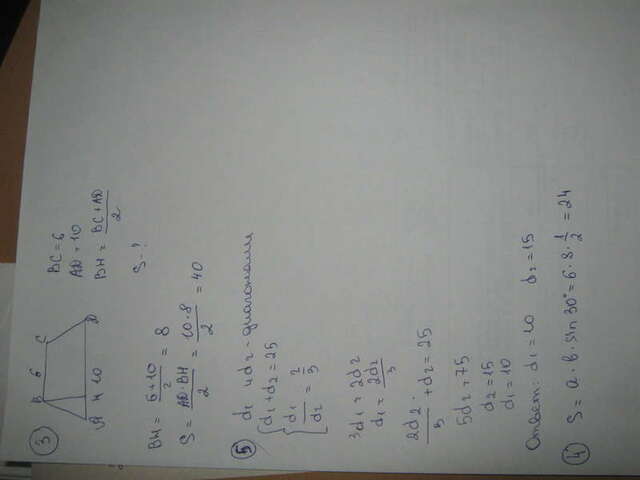 3
B 6 C
A H 10 D
BC = 6
AD = 10
BH = (BC + AD)/2
S - ?
BH = (6+10)/2 = 8
S = (AD·BH)/2 = (10·8)/2 = 40
5 d₁ и d₂ - диагонали
{ d₁ + d₂ = 25
{ d₁/d₂ = 2/3
3d₁ = 2d₂
d₁ = 2d₂/3
2d₂/3 + d₂ = 25
5d₂ = 75
d₂ = 15
d₁ = 10
Ответ: d₁ = 10 d₂ = 15
4 S = a · b · sin 30° = 6 · 8 · 1/2 = 24